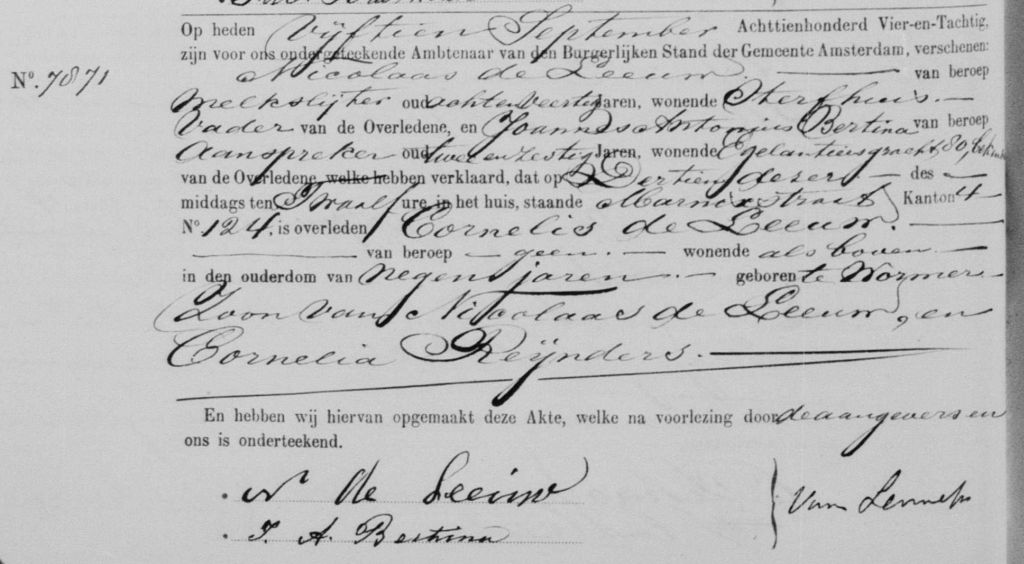 Op heden Vijftien September Achttienhonderd Vier-en-Tachtig,
zijn voor ons ondergeteekende Ambtenaar van den Burgerlijken Stand der Gemeente Amsterdam, verschenen:
No. 7871 Nicolaas de Leeuw van beroep
Melkslijter oud achtenveertig Jaren, wonende Sterfhuis.
Vader van de Overledene, en Joannes Antonius Bertina van beroep
Aanspreker oud twee en zestig Jaren, wonende Egelantiersgracht 80, bekende
van de Overledene, welke hebben verklaard, dat op Dertien deser des
middags ten Twaalf ure, in het huis, staande Marnixstraat Kanton 4
No. 124, is overleden Cornelis de Leeuw.
van beroep geen. wonende als boven
in den ouderdom van negen jaren. geboren te Wormer
Zoon van Nicolaas de Leeuw, en
Cornelia Reijnders.
En hebben wij hiervan opgemaakt deze Akte, welke na voorlezing door de aangevers en
ons is onderteekend.
N de Leeuw
J. A. Bertina
Van Lennep